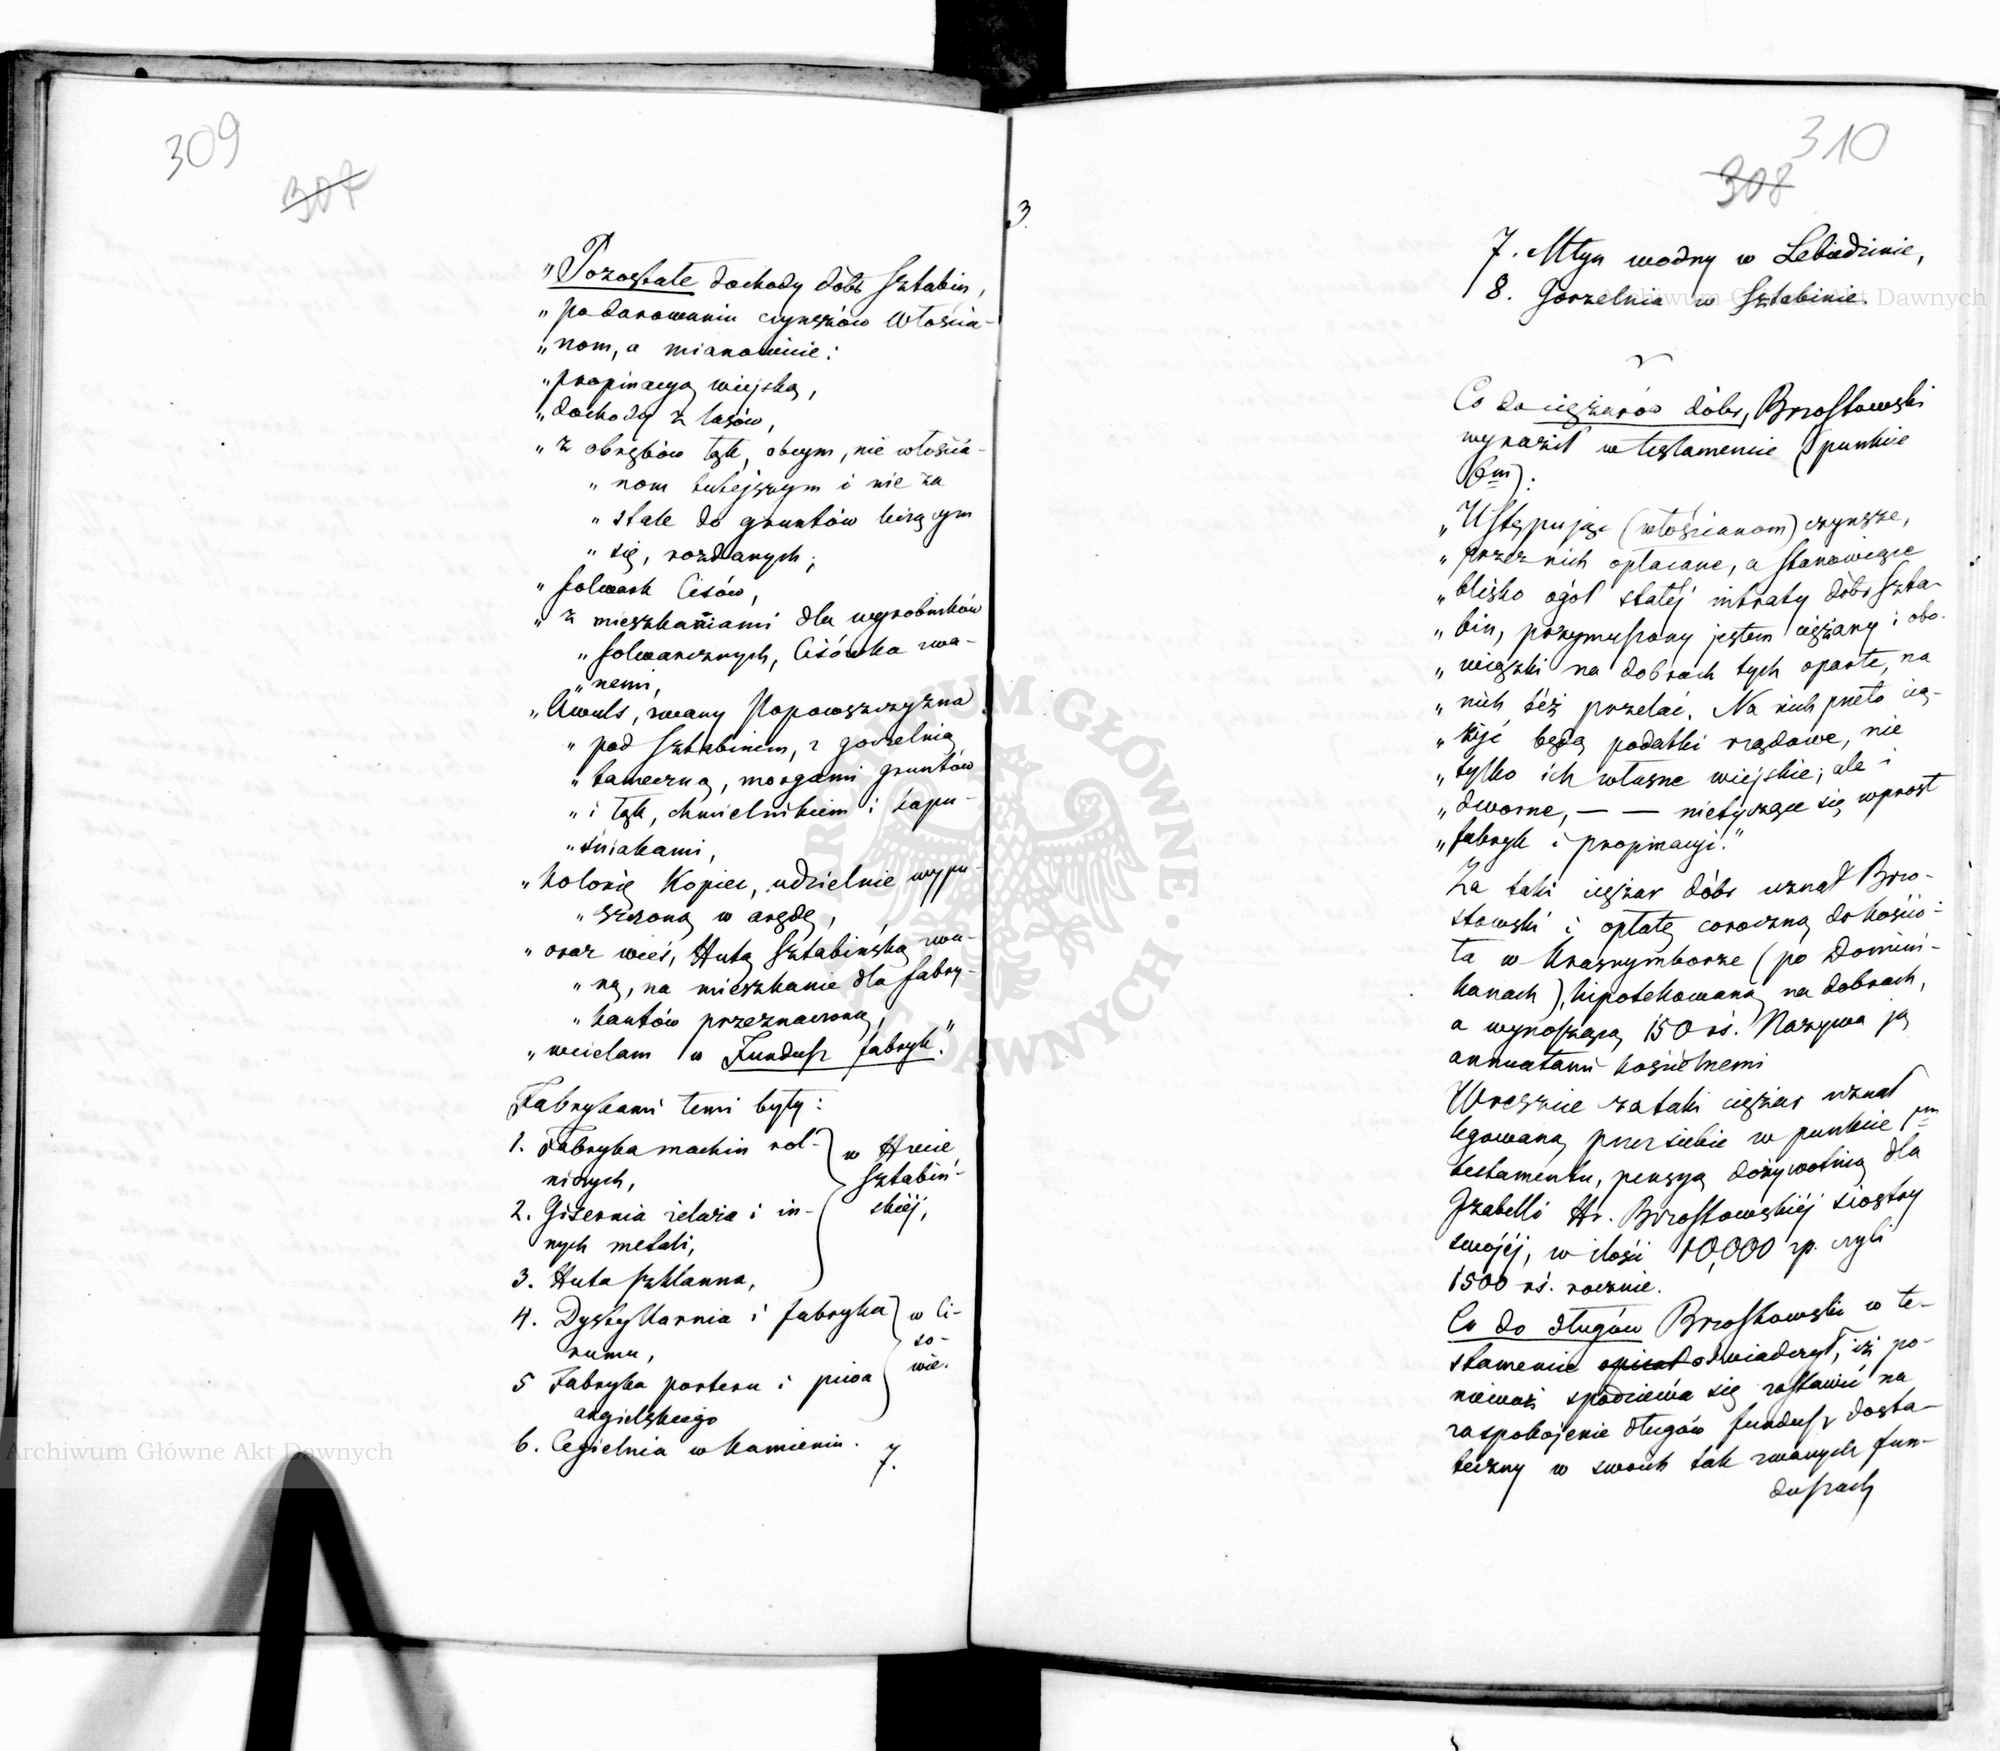 309
307
3.
„Pozostałe dochody dóbr Sztabin,
„po darowaniu czynszów włościa-
„nom, a mianowicie:
„propinacyą wiejską,
„dochody z lasów,
„z obrębów łąk, obcym, nie włościa-
„nom tutejszym i nie za
„stałe do gruntów liczącym
„się, rozdanych;
„folwark Cisów,
„z mieszkaniami dla wyrobników
„folwarcznych, Cisówka zwa-
„nemi,
„Awuls, zwany Popowszczyzna
„pod Sztabinem, z gorzelnią
„tameczną, morgami gruntów
„i łąk, chmielnikiem i kapu-
„śniakami,
„kolonię Kopiec, udzielnie wypu-
„szczoną w arędę,
„oraz wieś, Hutą Sztabińską zwa-
„ną, na mieszkanie dla fabry-
„kantów przeznaczoną,
„wcielam w Fundusz fabryk."
Fabrykami temi były:
1. Fabryka machin rol-
niczych,
w Hucie
Sztabiń-
skiéj,
2. Gisernia żelaza i in-
nych metali,
3. Huta szklanna,
4. Dystylarnia i fabryka
rumu,
w Ci-
so-
wie.
5 Fabryka porteru i piwa
angielskiego
6. Cegielnia w Kamieniu.
7.
310
308
7. Młyn wodny w Lebiedzinie,
8. Gorzelnia w Sztabinie.
Co do ciężarów dóbr, Brzostowski
wyraził w testamencie (punkcie
6m):
„Ustępując (włościanom) czynsze,
„przez nich opłacane, a stanowiące
„blisko ogół stałéj intraty dóbr Szta-
„bin, przymuszony jestem ciężary i obo-
„wiązki na dobrach tych oparte, na
„nich téż przelać. Na nich przeto cią-
„żyć będą podatki rządowe, nie
„tylko ich własne wiejskie, ale i
„dworne, — — nietyczące się wprost
„fabryk i propinacyi."
Za taki ciężar dóbr uznał Brzo-
stowski i opłatę coroczną do kościo-
ła w Krasnymborze (po Domini-
kanach), hipotekowaną na dobrach,
a wynoszącą 150 rś. Nazywa ją
annuatami kościelnemi
Wreszcie za taki ciężar uznał
legowaną przez siebie w punkcie
testamentu, pensyą dożywotnią dla
Izabelli Hr. Brzostowskiéj siostry
swojéj, w ilości 10,000 zp. czyli
1500 rś. rocznie.
Co do długów Brzostowski w te-
stamencie opisał odwiadczył, iż po-
nieważ spodziewa się zostawić na
zaspokojenie długów fundusz dosta-
teczny w swoich tak zwanych fun-
duszach
Archiwum Główne Akt Dawnych
Archiwum Główne Akt Dawnych
ARCHIWUM GŁÓWNE AKT DAWNYCH